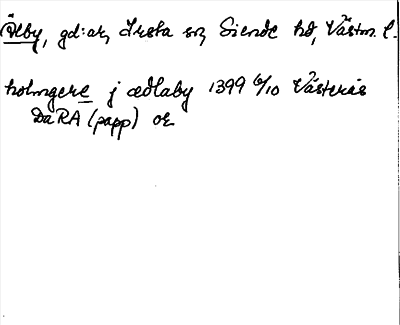 Älby, gd:ar, Irsta sn, Siende hd, Västm. l.
holmgere j ædlaby 1399 6/10 Västerås
DaRA (papp) or